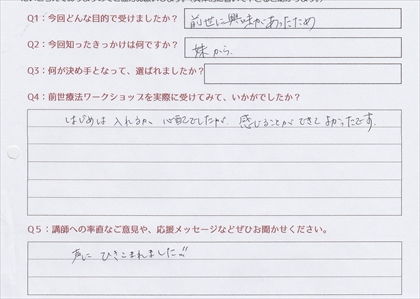 Q1：今回どんな目的で受けましたか？ 前世に興味があったため
Q2：今回知ったきっかけは何ですか？ 妹から.
Q3：何が決め手となって、選ばれましたか？
Q4：前世療法ワークショップを実際に受けてみて、いかがでしたか？
はじめは入れるか、心配でしたが、感じることができてよかったです.
Q5：講師への率直なご意見や、応援メッセージなどぜひお聞かせください。
声に ひきこまれました!!